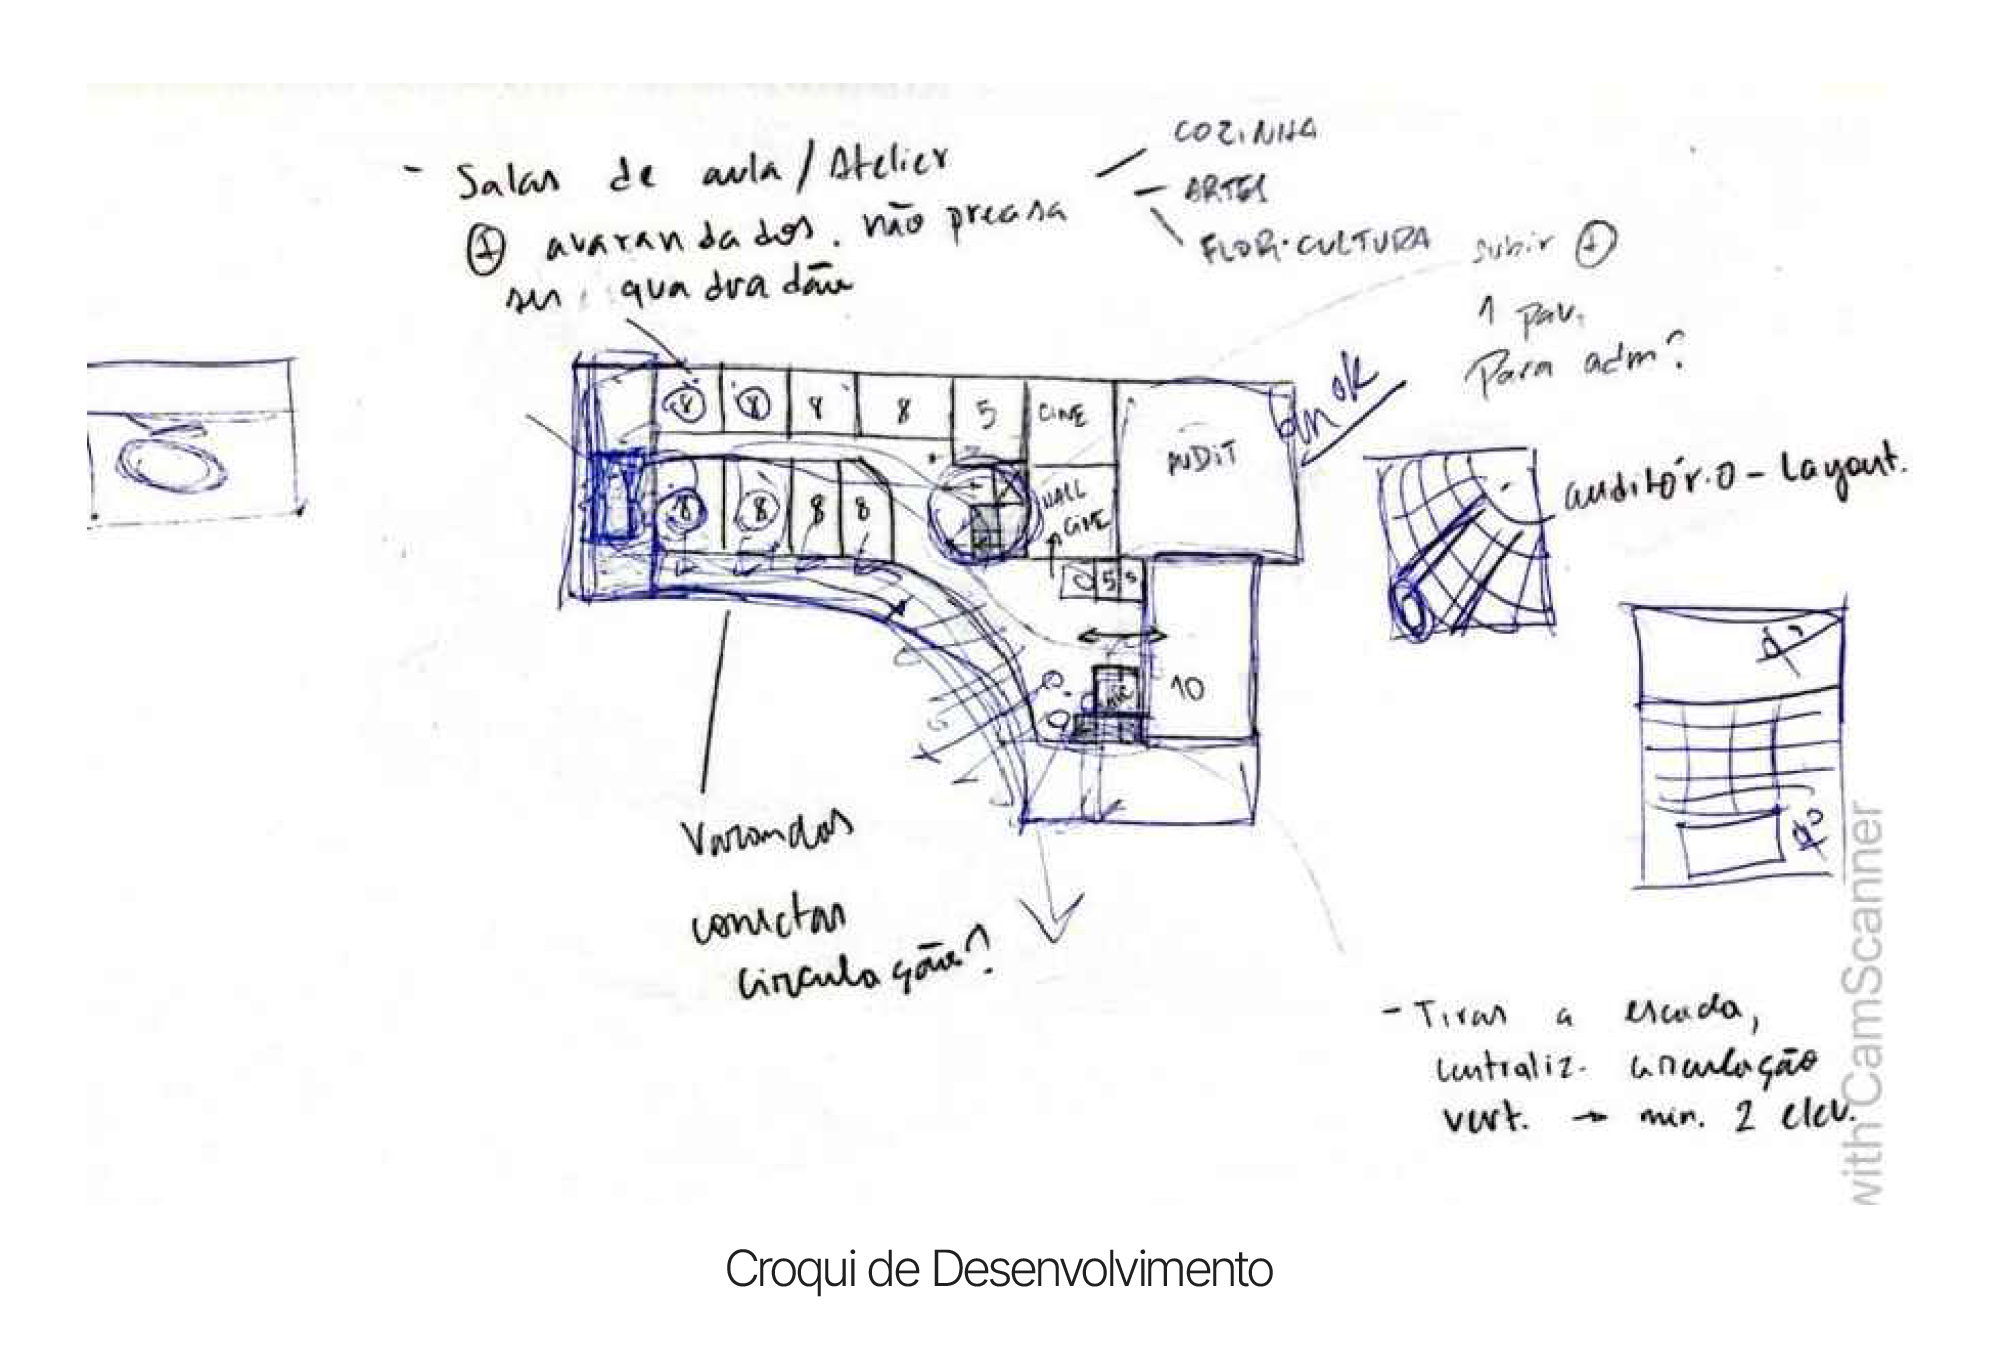 - Salas de aula / Atelier
+ avarandados. não precisa
ser quadradão
COZINHA
ARTES
FLORICULTURA
subir +
1 pav.
Para adm?
ok
8 8 8 8 5 CINE
AUDIT
8 8 8 8
HALL
CINE
5 5
10
auditório - Layout.
Varandas
conectar
circulação?
- Tirar a escada,
centraliz. circulação
vert. → min. 2 elev.
with CamScanner
Croqui de Desenvolvimento